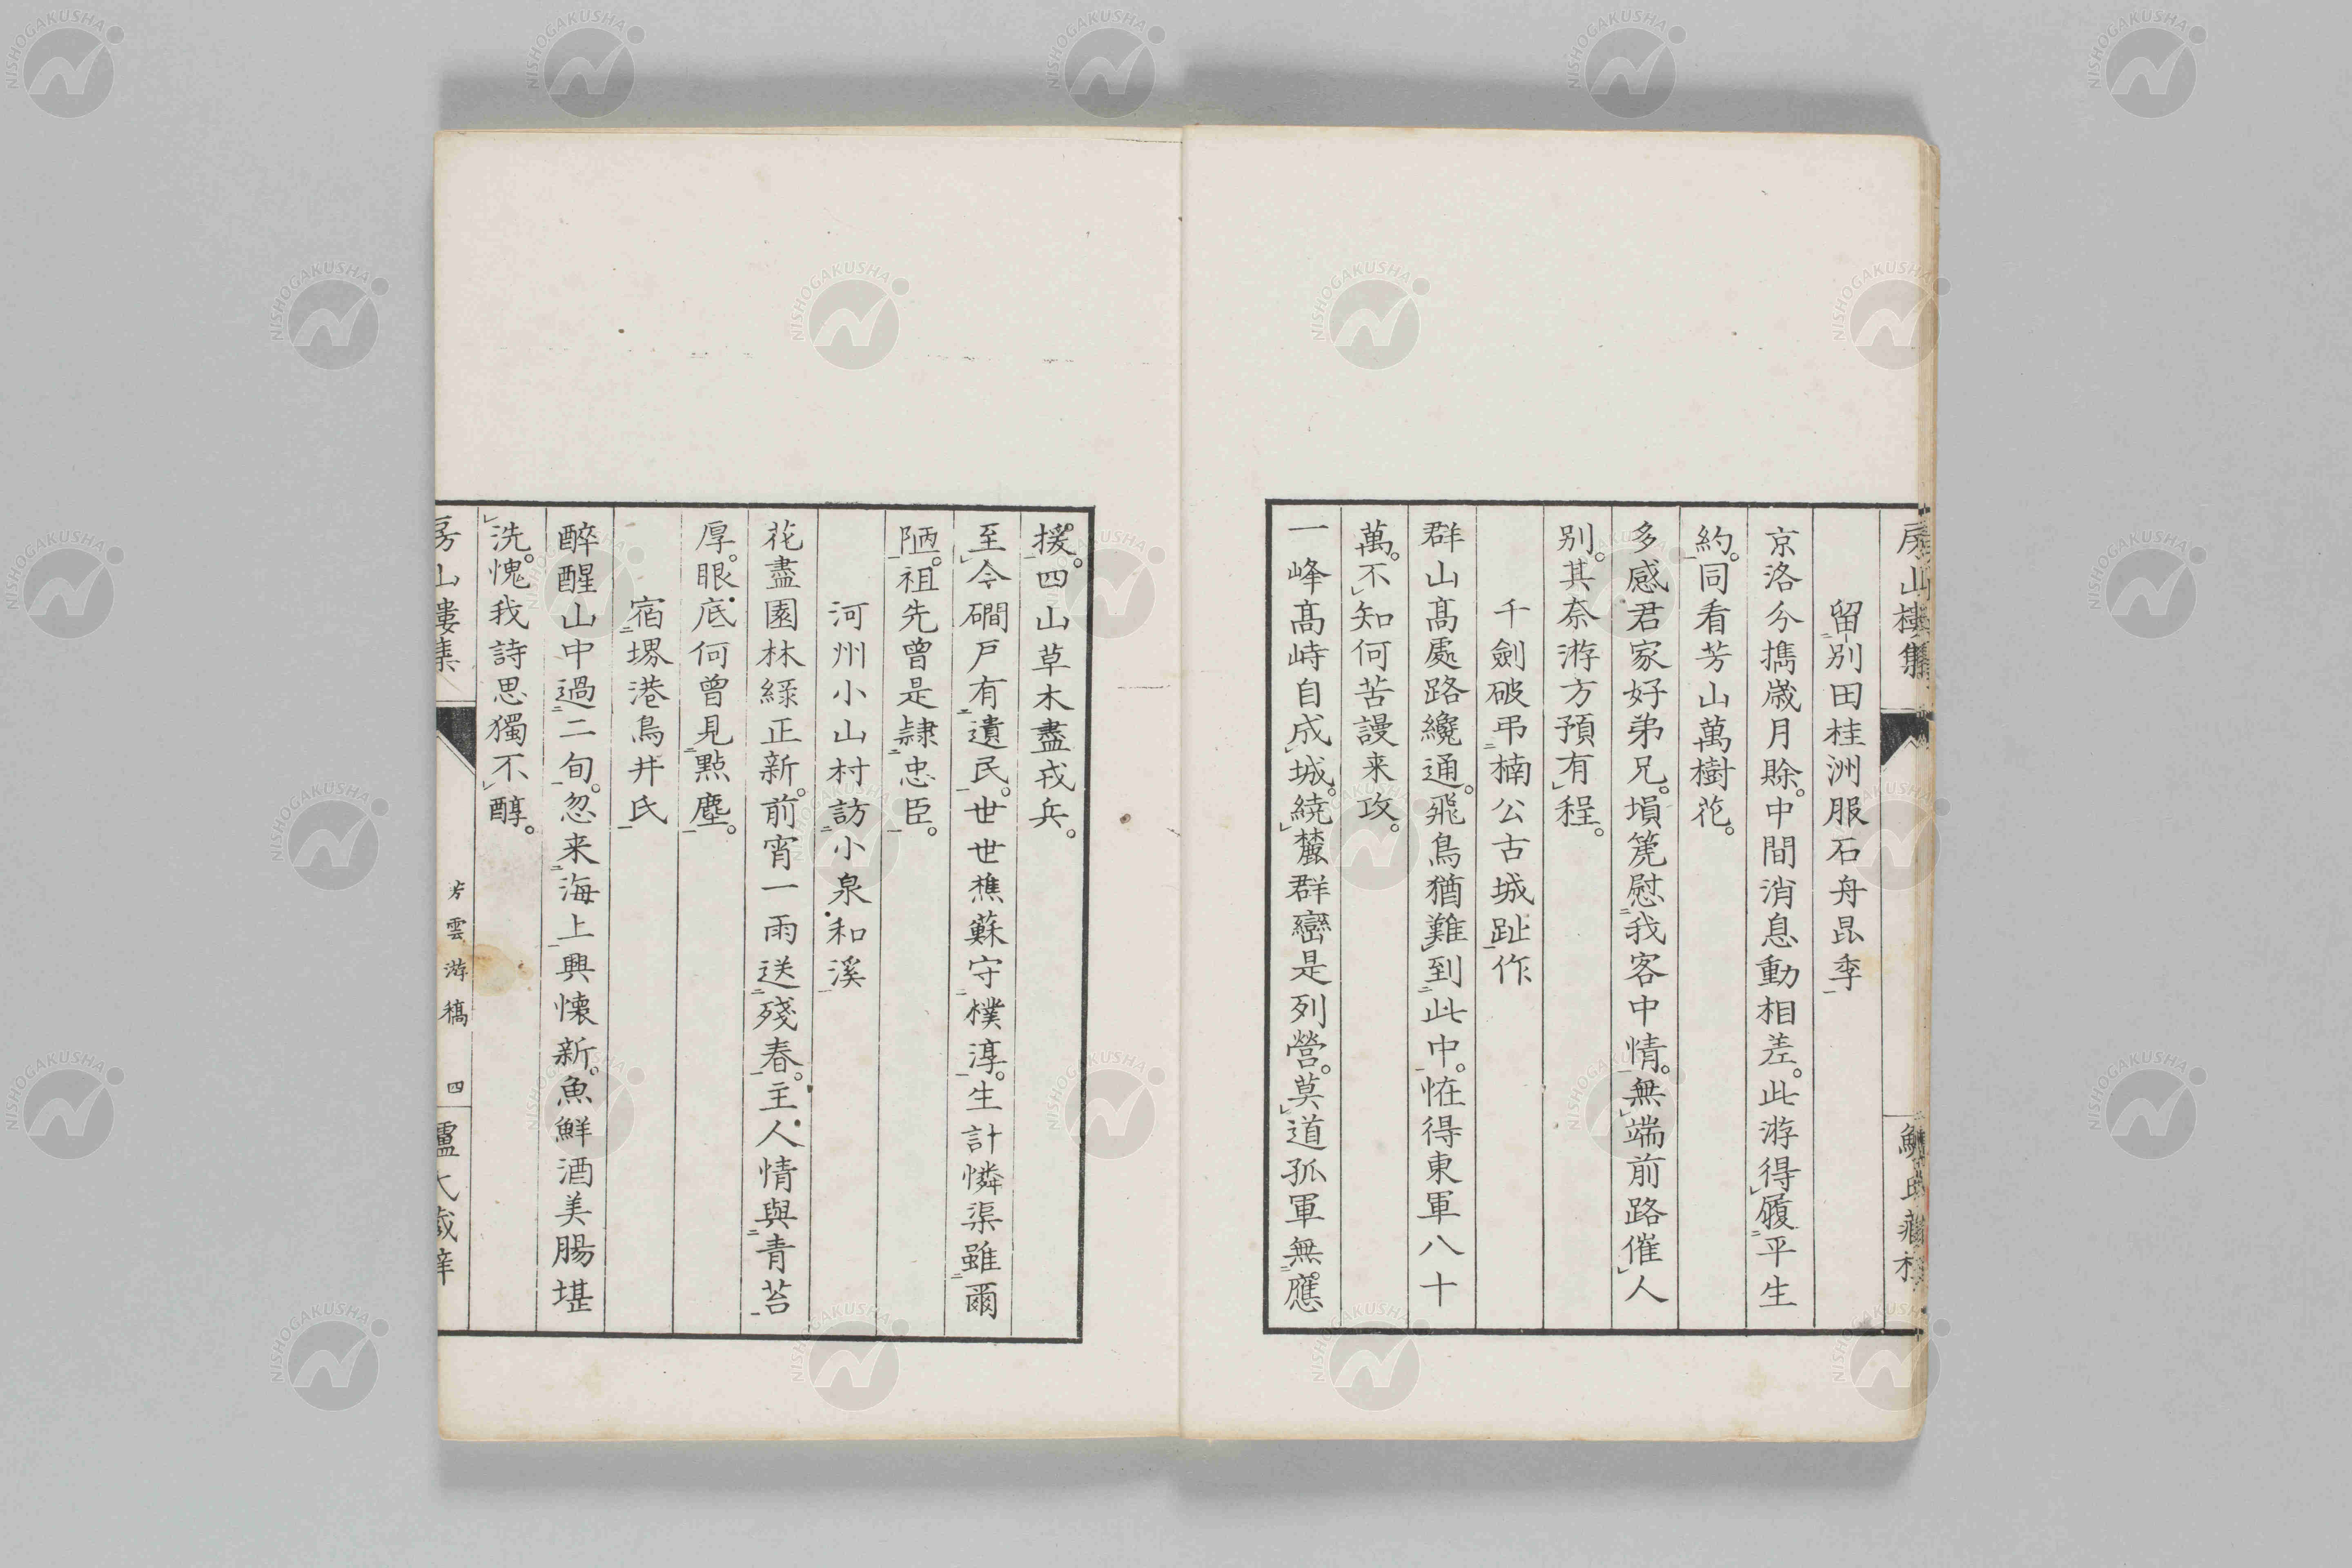 房山樓集
留別田桂洲服石舟昆季
京洛分攜歳月賒。中間消息動相差。此游得履平生
約。同看芳山萬樹花。
多感君家好弟兄。塤箎慰我客中情。無端前路催人
別。其奈游方預有程。
千劍破弔楠公古城趾作
群山髙處路纔通。飛鳥猶難到此中。恠得東軍八十
萬。不知何苦謾来攻。
一峰髙峙自成城。繞麓群巒是列營。莫道孤軍無應
援。四山草木盡戎兵。
至今磵戸有遺民。世世樵蘇守樸淳。生計憐渠雖爾
陋。祖先曾是隷忠臣。
河州小山村訪小泉和溪
花盡園林緑正新。前宵一雨送殘春。主人情與青苔
厚。眼底何曾見點塵。
宿堺港鳥井氏
醉醒山中過二旬。忽来海上興懐新。魚鮮酒美腸堪
洗。愧我詩思獨不醇。
房山樓集
芳雲游稿
四
NISHOGAKUSHA